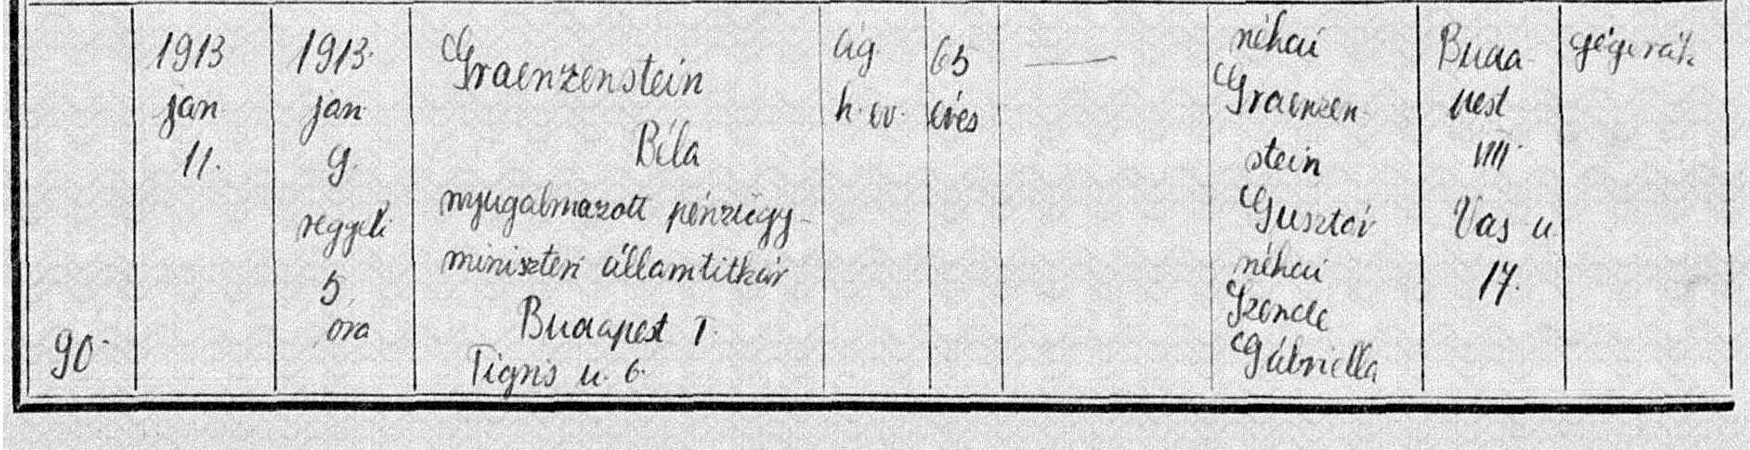 90.
1913
jan
11.
1913.
jan
9.
reggeli
5
óra
Graenzenstein
Béla
nyugalmazott pénzügy-
miniszteri államtitkár
Budapest I.
Tigris u. 6.
ág
h. ev.
65
éves
néhai
Graenzen
stein
Gusztáv
néhai
Szende
Gábriella
Buda
pest
VIII.
Vas u
17.
gégerák